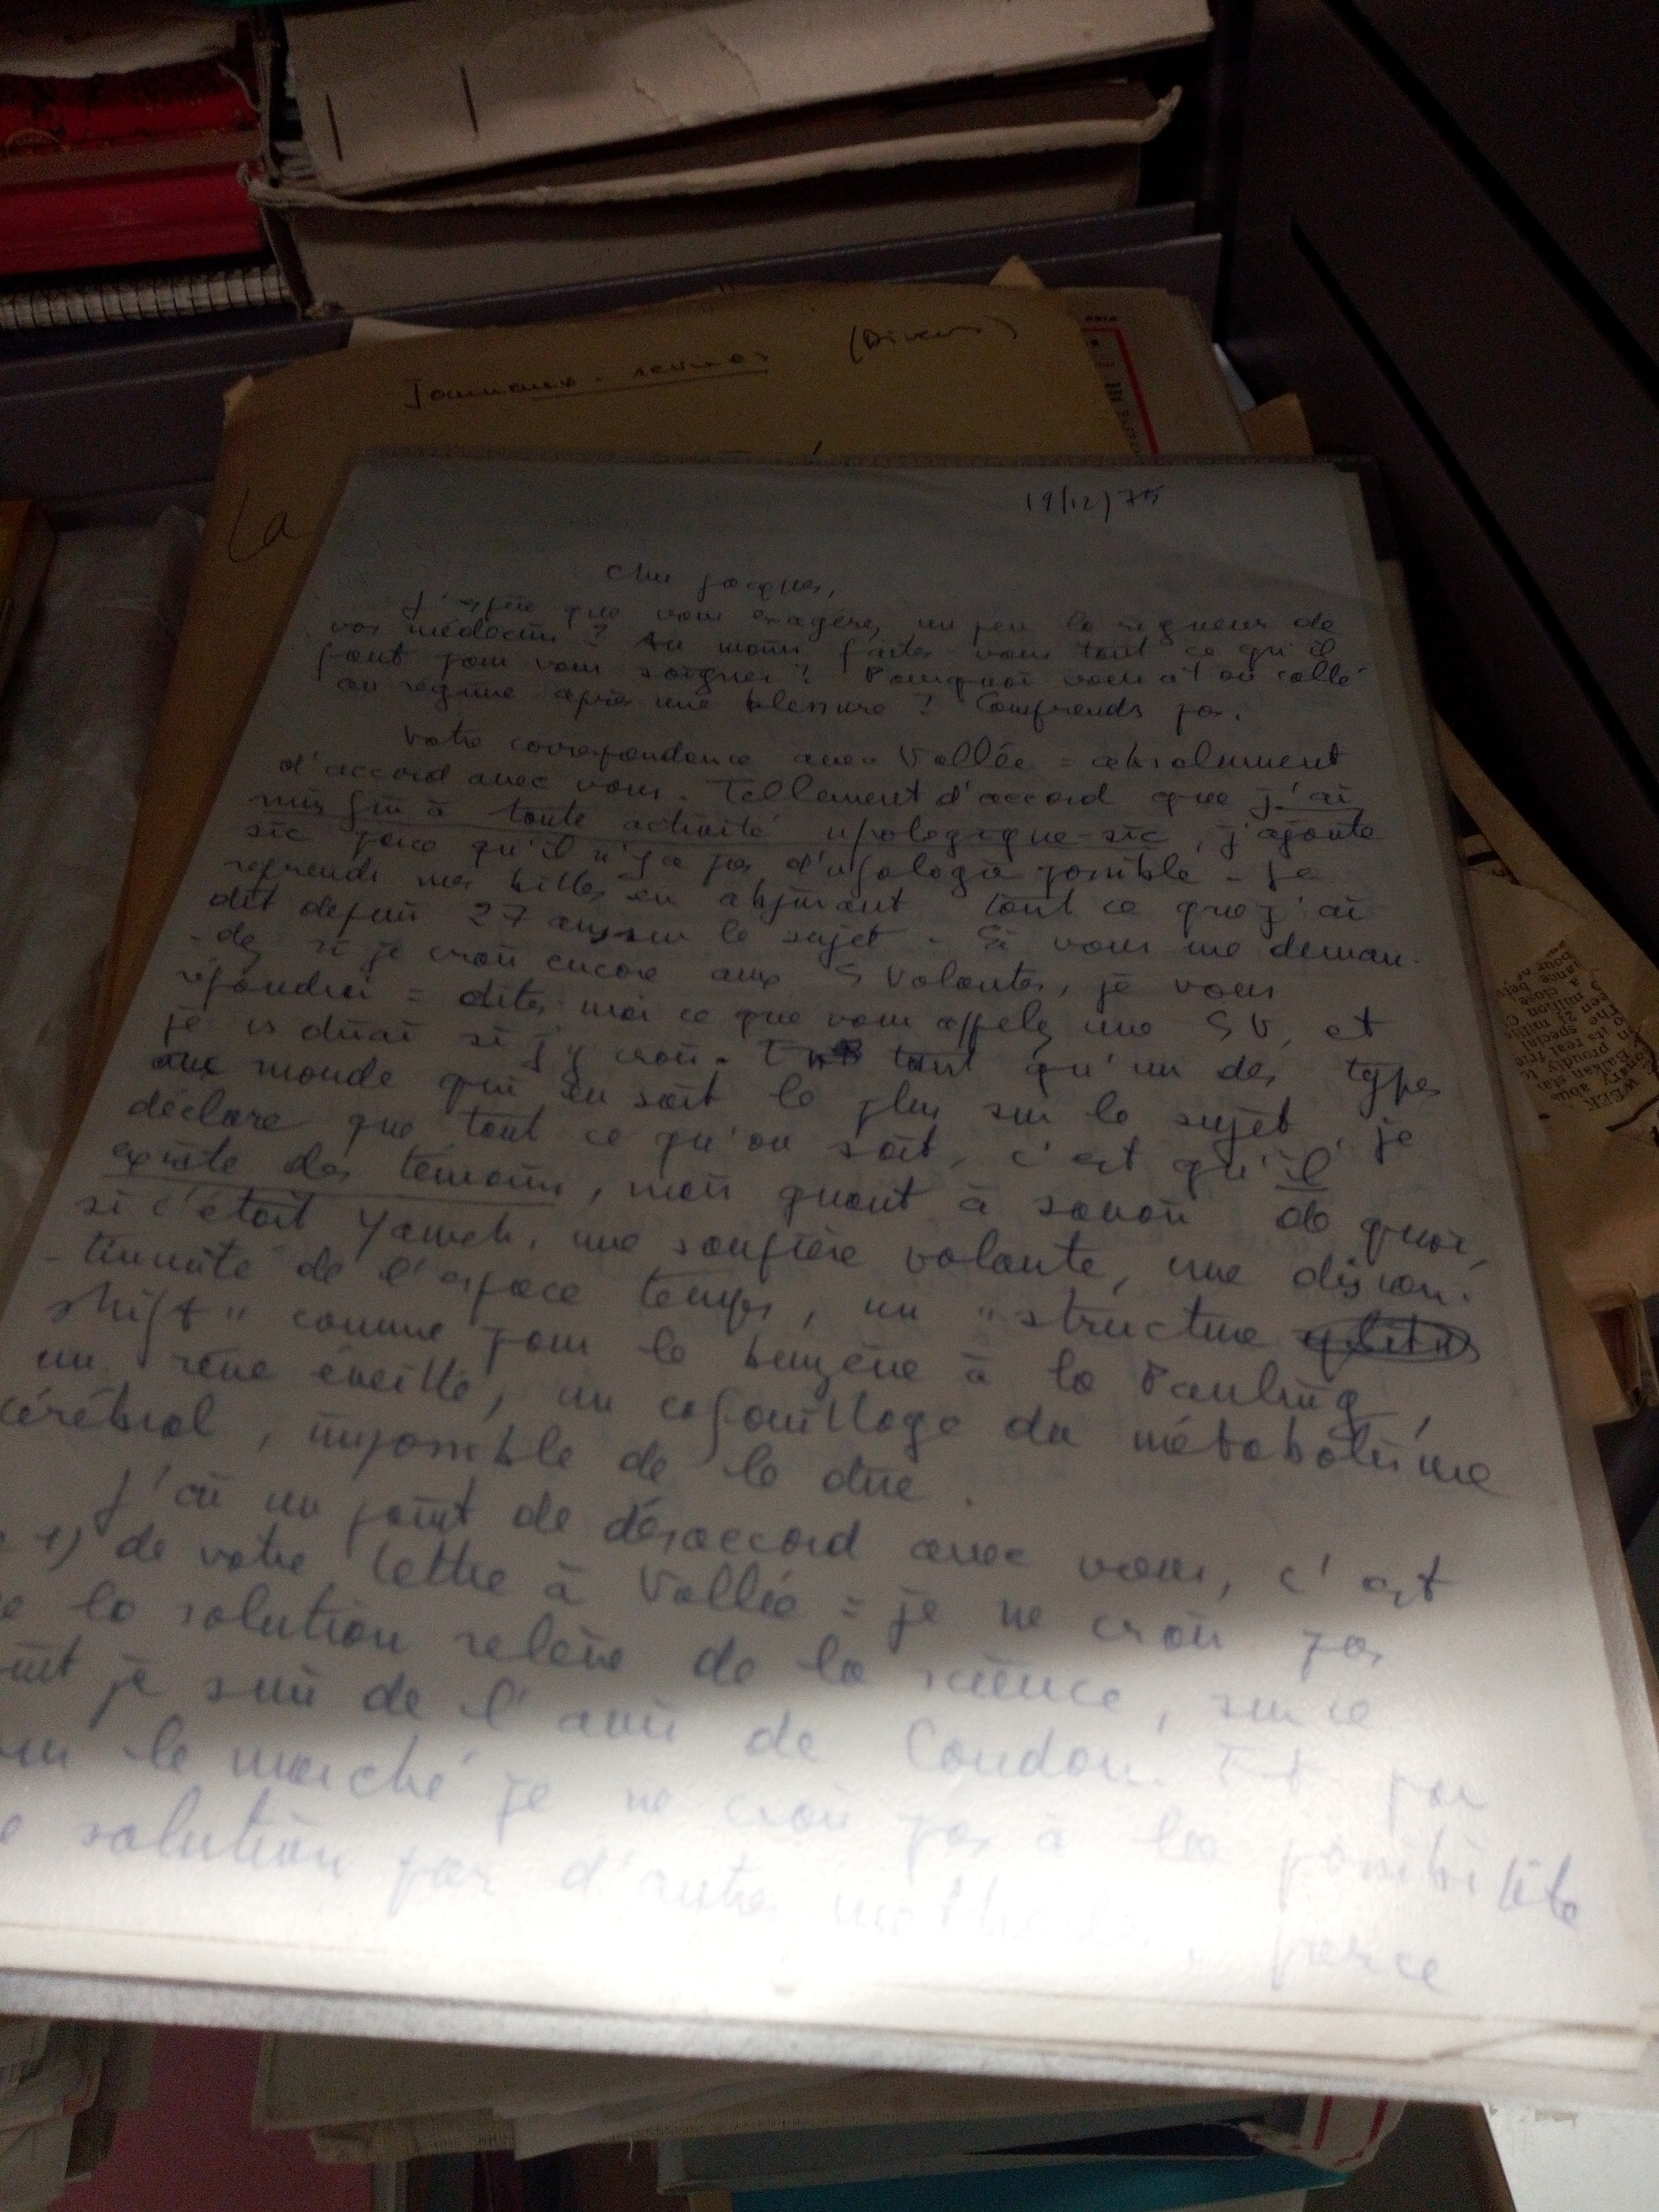 Journaux - revues (Divers)
La
19/12/75
Cher Jacques,
J'espère que vous exagérez un peu la rigueur de
vos médecins ? Au moins faites-vous tout ce qu'il
faut pour vous soigner ? Pourquoi vous a-t-on collé
au régime après une blessure ? Comprends pas.
Votre correspondance avec Vallée = absolument
d'accord avec vous. Tellement d'accord que j'ai
mis fin à toute activité upologique-sic, j'ajoute
sic parce qu'il n'y a pas d'ufologie possible - je
reprends mes billes en abjurant tout ce que j'ai
dit depuis 27 ans sur le sujet. Si vous me deman-
-dez si je crois encore aux S Volantes, je vous
répondrai = dites moi ce que vous appelez une SV, et
je vs dirai si j'y crois. En tant qu'un des types
au monde qui en sait le plus sur le sujet, je
déclare que tout ce qu'on sait, c'est qu'il
existe des témoins, mais quant à savoir de quoi,
si c'était Yaweh, une soupière volante, une discon-
-tinuité de l'espace temps, un "structure
shift" comme pour le benzène à la Pauling,
un rêve éveillé, un cafouillage du métabolisme
cérébral, impossible de le dire.
J'ai un point de désaccord avec vous, c'est
1) de votre lettre à Vallée = je ne crois pas
la solution relève de la science, sur ce
je suis de l'avis de Condon. Et par
le marché je ne crois pas à la possibilité
solution par d'autres méthodes, parce